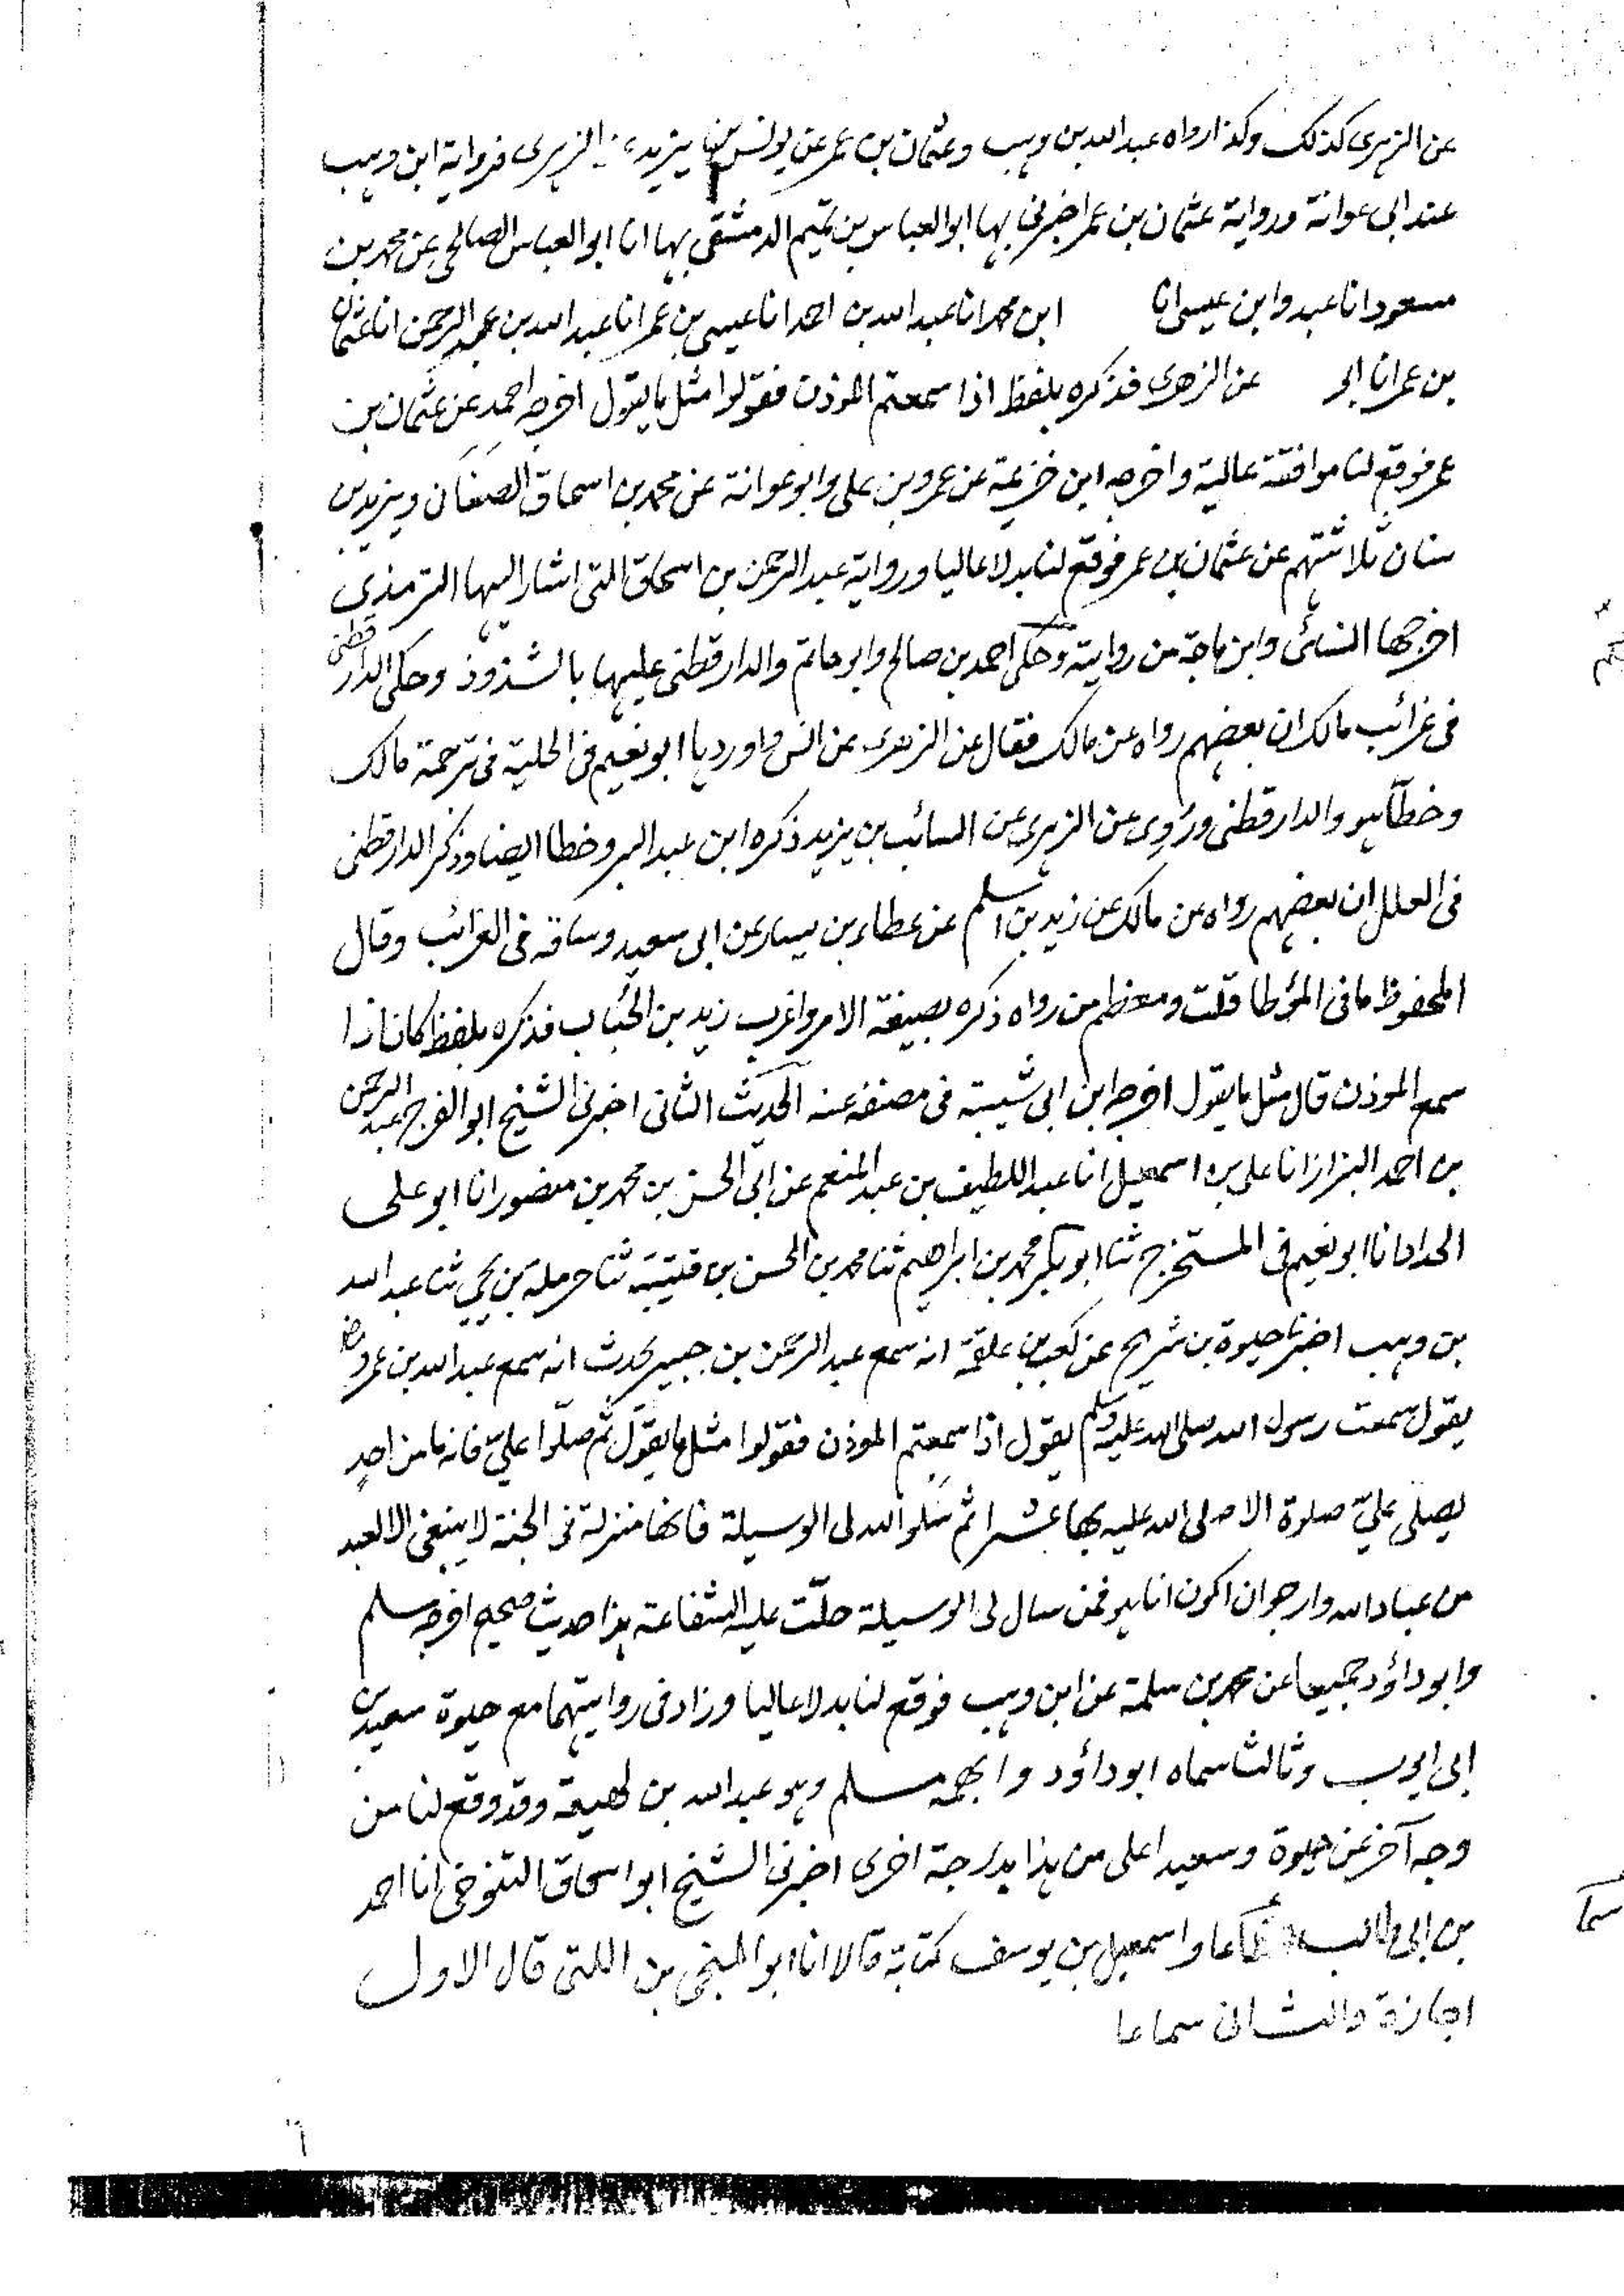 عن الزهري كذلك وكذا رواه عبد الله بن وهب وعثمان بن عمر عن يونس بن يزيد عن الزهري فرواية ابن وهب
عند ابى عوانة ورواية عثمان بن عمر اخبرني بها ابو العباس بن تميم الدمشقى بها انا ابو العباس الصالحى عن محمد بن
مسعود انا عبد وابن عيسى انا ابن محمد انا عبد الله بن احمد انا عيسى بن عمر انا عبد الله بن عبد الرحمن انا عثمان
بن عمر انا عن الزهرى فذكره بلفظ اذا سمعتم المؤذن فقولوا مثل ما يقول اخرجه احمد عن عثمان بن
عمر فوقع لنا موافقة عالية واخرجه ابن خزيمة عن عمرو بن على وابو عوانة عن محمد بن اسحاق الصغانى ويزيد بن
سنان ثلاثتهم عن عثمان بن عمر فوقع لنا بدلا عاليا ورواية عبد الرحمن بن اسحاق التى اشار اليها الترمذي
اخرجها النسائى وابن ماجة من روايته وحكى احمد بن صالح وابو حاتم والدارقطنى عليها بالشذوذ وحكى الدارقطنى
فى غرائب مالك ان بعضهم رواه عن مالك فقال عن الزهرى عن انس واوردها ابو نعيم فى الحلية فى ترجمة مالك
وخطآ هو والدارقطنى وروى عن الزهرى عن السائب بن يزيد ذكره ابن عبد البر وخطا ايضا وذكر الدارقطنى
فى العلل ان بعضهم رواه عن مالك عن زيد بن اسلم عن عطاء بن يسار عن ابى سعيد وساقه فى الغرائب وقال
المحفوظ ما فى المؤطا قلت ومعظم من رواه ذكره بصيغة الامر واغرب زيد بن الحباب فذكره بلفظ كان اذا
سمع المؤذن قال مثل ما يقول اخرجه ابن ابى شيبة فى مصنفه عنه الحديث الثانى اخبرنى الشيخ ابو الفرج عبد الرحمن
بن احمد البزاز انا على بن اسمعيل انا عبد اللطيف بن عبد المنعم عن ابى الحسن بن محمد بن منصور انا ابو على
الحداد انا ابو نعيم فى المستخرج ثنا ابو بكر محمد بن ابراهيم ثنا محمد بن الحسن بن قتيبة ثنا حرملة بن يحيى ثنا عبد الله
بن وهب اخبرنا حيوة بن شريح عن كعب بن علقمة انه سمع عبد الرحمن بن جبير يحدث انه سمع عبد الله بن عمرو رض
يقول سمعت رسول الله صلى الله عليه وسلم يقول اذا سمعتم المؤذن فقولوا مثل ما يقول ثم صلّوا علىّ فانه ما من احدٍ
يصلى علىّ صلوة الا صلى الله عليه بها عشرا ثم سلوا الله لى الوسيلة فانها منزلة فى الجنة لا ينبغى الا لعبد
من عباد الله وارجو ان اكون انا هو فمن سال لى الوسيلة حلّت عليه الشفاعة هذا حديث صحيح اخرجه مسلم
وابو داؤد جميعا عن محمد بن سلمة عن ابن وهب فوقع لنا بدلا عاليا وزاد فى روايتهما مع حيوة سعيد بن
ابى ايوب وثالثا سماه ابو داؤد وابهمه مسلم وهو عبد الله بن لهيعة وقد وقع لنا من
وجه آخر عن حيوة وسعيد اعلى من هذا بدرجة اخرى اخبرنى الشيخ ابو اسحاق التنوخى انا احمد
بن ابى طالب سماعا واسمعيل بن يوسف كتابة قالا انا ابو المنجى بن اللتى قال الاول
اجازة والثانى سماعا
٦